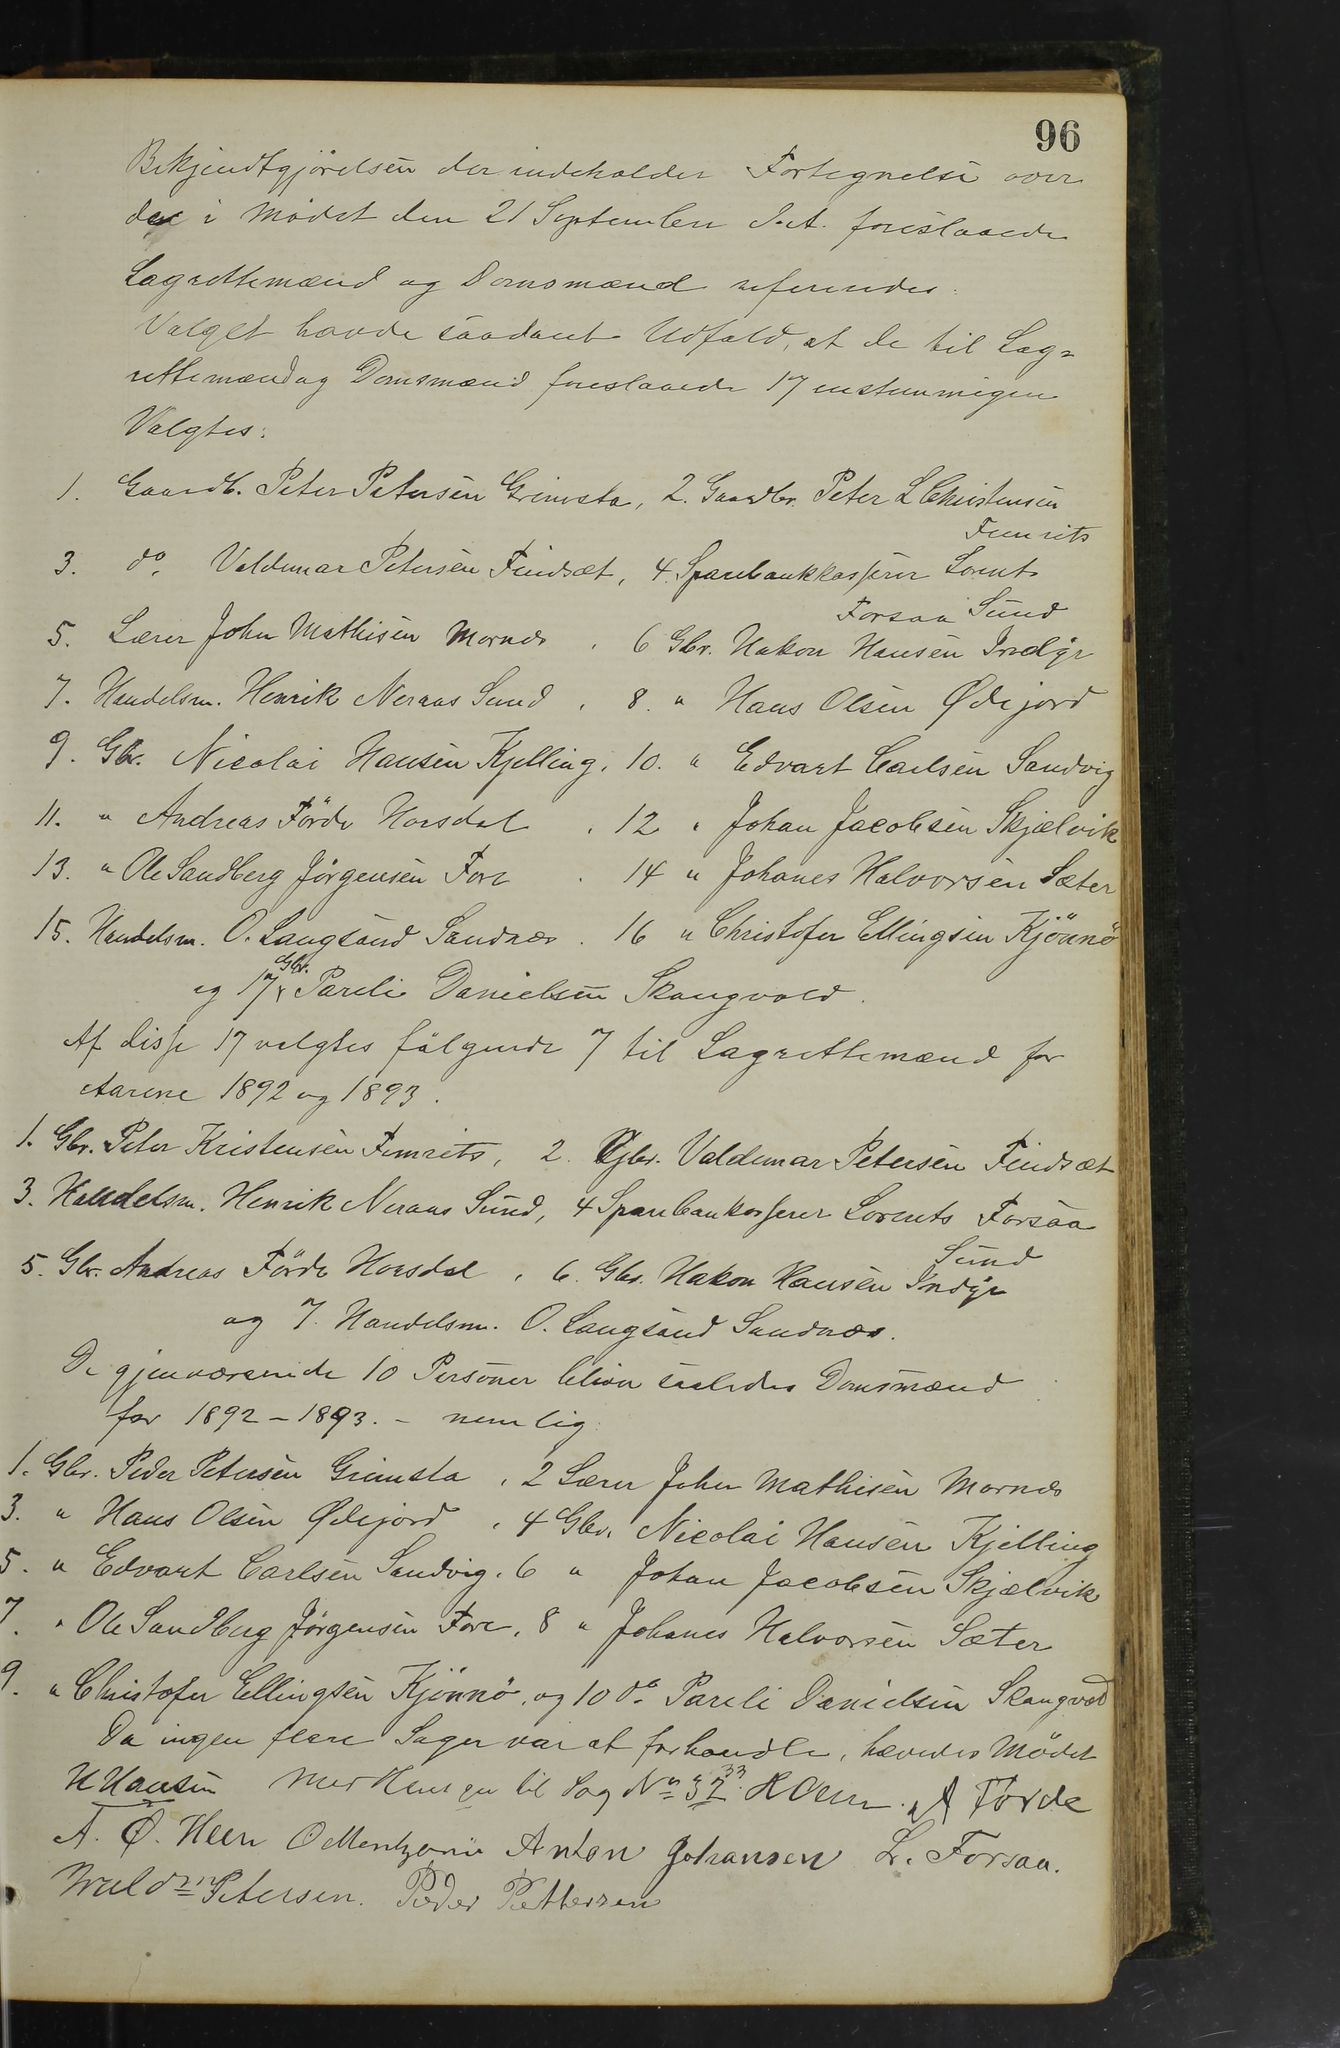 96
Bekjendtgjörelsen der indeholder Fortegnelse over
de i Mödet den 21 September d.A. foreslaaede
Lagrettemænd og Domsmænd refereredes.
Valget havde saadant Udfald, at de til Lag-
rettemænd og Domsmænd foreslaaede 17 enstemmigen
Valgtes:
1. Gaardb. Peter Petersen Grimsta, 2. Gaardbr. Peter L Christensen
Fumrits
3. do. Valdemar Petersen Findsæt, 4. Sparebankkasserer Lornts
Forsaa Sund
5. Lærer John Mathisen Mornæs, 6 Gbr. Hakon Hansen Indyr
7. Handelsm. Henrik Neraas Sund, 8. " Hans Olsen Ødejord
9. Gbr. Nicolai Hansen Kjelling, 10. " Edvart Carlsen Sandvig
11. " Andreas Förde Horsdal, 12 " Johan Jacobsen Skjælvik
13. " Ole Sandberg Jörgensen Fore. 14 " Johanes Halvorsen Sæter
15. Handelsm. O. Langsand Sandnæs. 16 " Christofer Ellingsen Kjönnö
Gbr.
og 17, Pareli Danielsen Skaugvold.
Af disse 17 valgtes fölgende 7 til Lagrettemænd for
Aarene 1892 og 1893.
1. Gbr. Peter Kristensen Fumrits, 2. Gbr. Valdemar Petersen Findsæt
3. Handelsm. Henrik Neraas Sund, 4 Sparebankasserer Lorents Forsaa
Sund
5. Gbr. Andreas Förde Horsdal, 6. Gbr. Hakon Hansen Indyr
og 7. Handelsm. O. Langsand Sandnæs.
De gjenværende 10 Personer bliver saaledes Domsmænd
for 1892 - 1893. - nemlig:
1. Gbr. Peder Petersen Grimsta, 2 Lærer John Mathisen Mornæs
3. " Hans Olsen Ødejord, 4 Gbr. Nicolai Hansen Kjelling
5. " Edvart Carlsen Sandvig, 6 " Johan Jacobsen Skjælvik
7. " Ole Sandberg Jörgensen Fore, 8 " Johanes Halvorsen Sæter
9. " Christofer Ellingsen Kjönnö, og 10 do. Pareli Danielsen Skaugvold
Da ingen flere Sager var at forhandle, hævedes Mödet
33
H Hansen til Sag No 32. A Förde
A. Ø. Heen O Mentzoni Anton Johansen L. Forsaa.
Petersen. Peder Pettersen